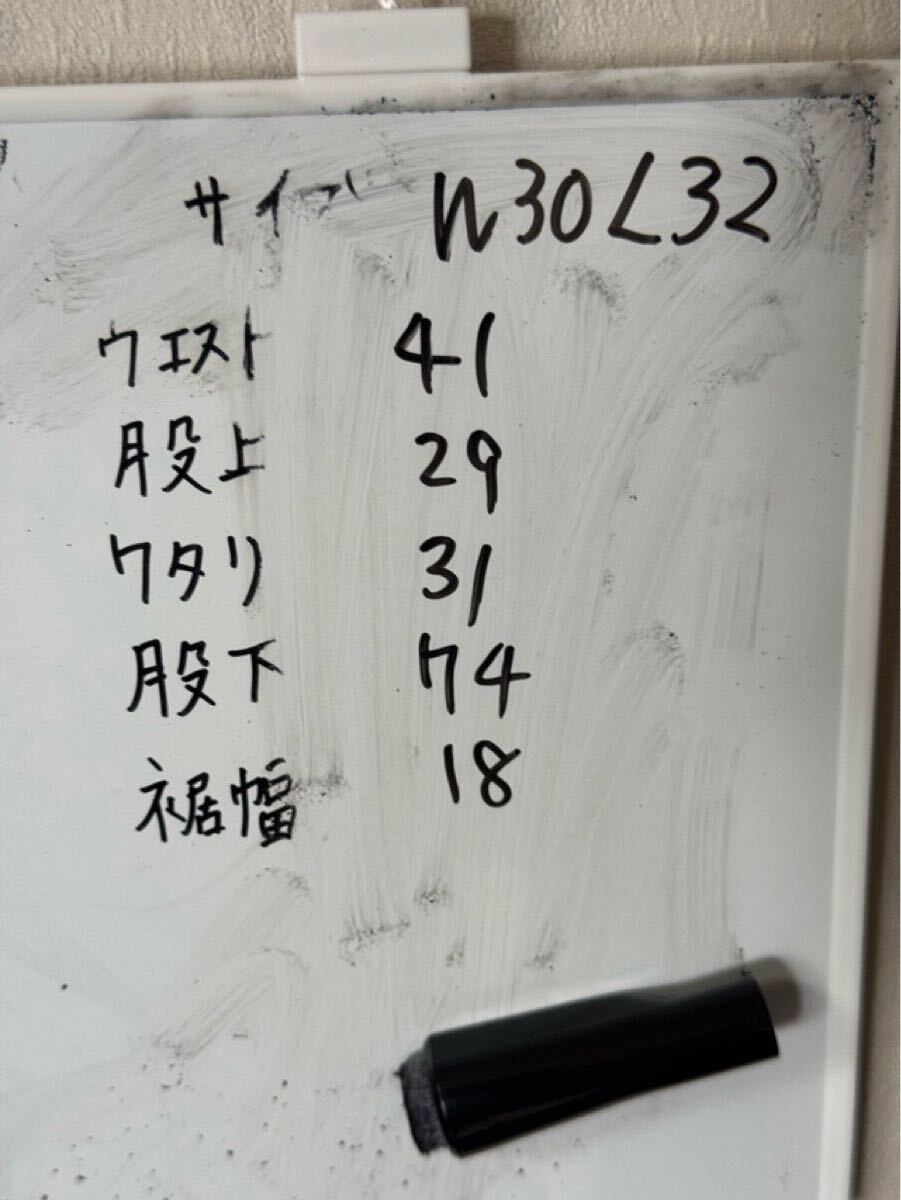 サイズ W30L32
ウエスト 41
股上 29
ワタリ 31
股下 74
裾幅 18